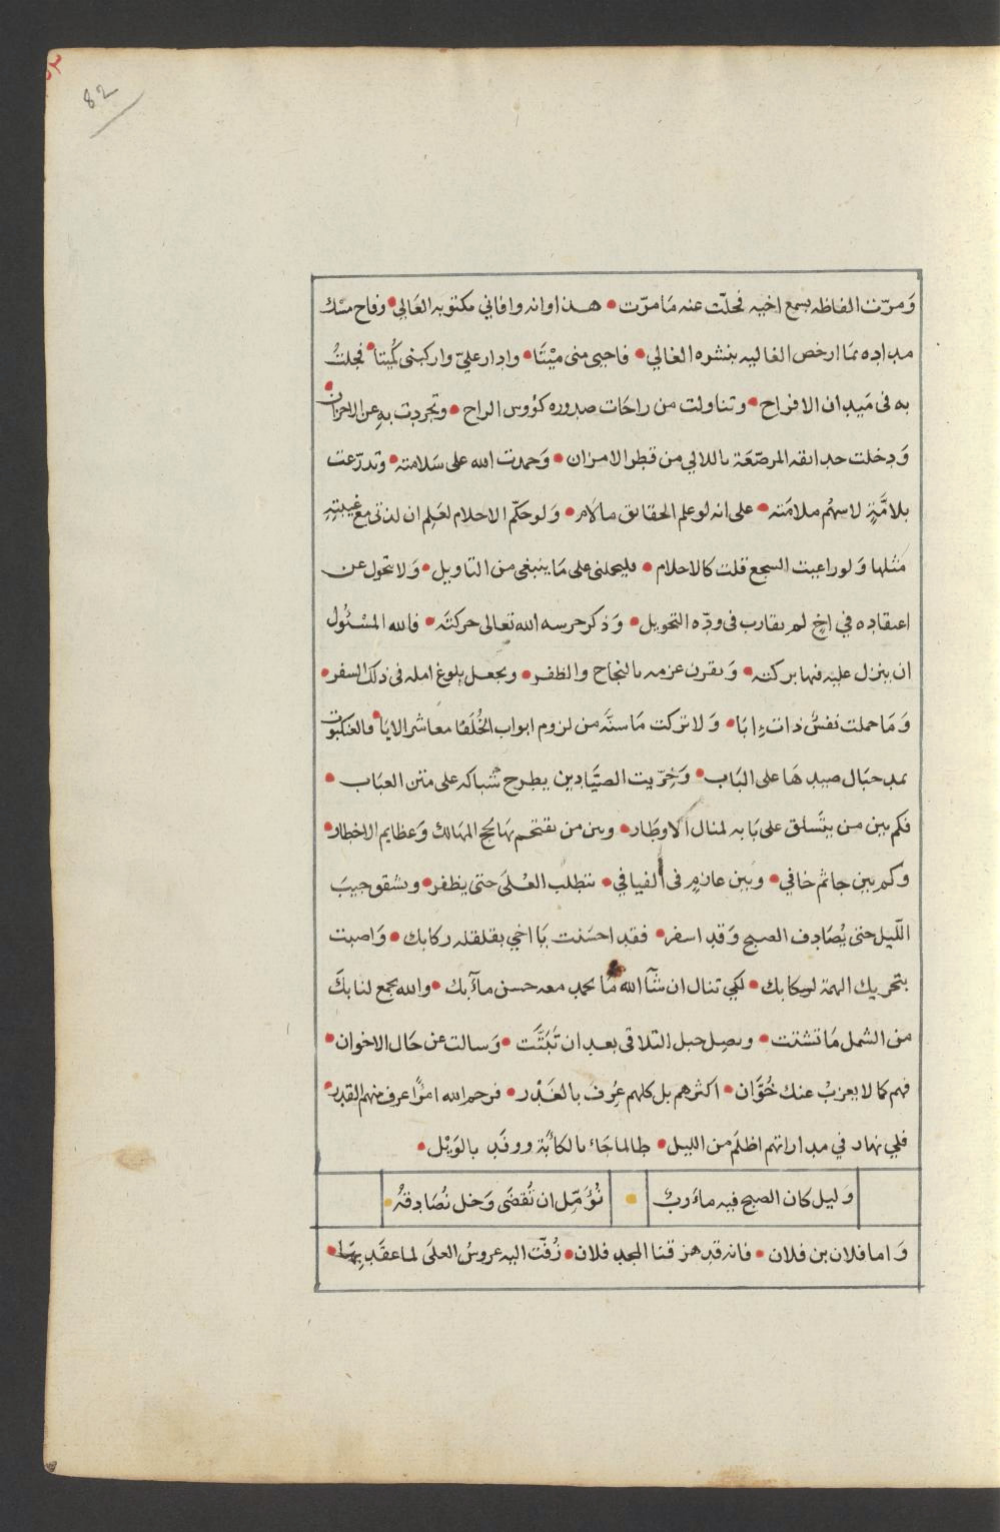 82
وَمرّت الفاظه بسمع اخيه فحلّت عنه مَا مرّت • هذا وانه وافاني مكتوبه العَالي • وفاح مسْك
مداده بمَا ارخص الغاليه بنشره الغالي • فاحيى منى ميْتًا • وادار عليّ واركبنى كُميتًا • فجلتُ
به فى مَيدان الافراح • وتناولت من راحَات صدوره كؤوس الراح • وتجردت بهِ عن الاحزان •
وَدخلت حدائقه المرصّعَة باللالي من قطر الامزان • وَحمدت الله على سَلامته • وتدرّعت
بلامَّةٍ لاسهُم ملامَته • على انه لو علم الحقايق مالام • وَلو حكّم الاحلام لعَلِم ان لذتى مع غيبتِهِ
مثلها وَلو راعيت السجع قلت كالاحلام • فليحملنى على مَا ينبغى من التاويل • وَلا يتحول عن
اعتقاده في اخٍ لم يقارب فى ودّه التحويل • وَذكر حرسه الله تعالى حركتَه • فالله المسْئول
ان ينزل عليه فيها بركته • وَيقرن عزمه بالنجاح والظفر • ويجعل بلوغ امله فى ذلك السفر •
وَمَا حملت نفسٌ ذات اِبَا • وَلا تركت مَا سنَّه من لزوم ابواب الخُلَفَا معاشر الابَا • فالعنكبوت
يمد حبَال صيدهَا على البَاب • وَخِرّيت الصيَّادين يطرح شباكه على متن العبَاب •
فكم بين من يتَسلق على بَابه لمنال الاوطَار • وبين من يقتحم بهَايج المهَالك وَعظايم الاخطار •
وكم بين جاثم خافي • وبَين عازمٍ فى الفيافي • يتطلب العُلَى حتى يظفر • ويشقق جيبَ
اللّيل حتى يُصَادف الصبح وَقد اسفر • فقد احسَنت يَا اخي بقلقله ركابك • وَاصبت
بتحريك الهمة لهيكابك • لكي تنال ان شَآ الله مَا يحمد معه حسن مآبك • والله يجمع لنا بكَ
من الشمل مَا تشتت • ويصل حبل التلاقى بعد ان تَبَتَّت • وَسالت عن حَال الاخوان •
فهم كما لا يعزبُ عنك خُوَّان • اكثرهم بل كلهم عُرِف بالغَدْر • فرحم الله امرًا عرف منهم القدر •
فلي نهار في مداراتهم اظلَم من الليل • طالما جَاء بالكآبَة ووفَد بالوَيْل •
وَليل كان الصبح فيه مأرب • نُؤَمّل ان تُقضَى وَخل نُصَادقهُ •
وَاما فلان بن فلان • فانه قد هز قنا المجد فلان • زُفّت اليه عروسُ العلَى لما عقَد بهَا •